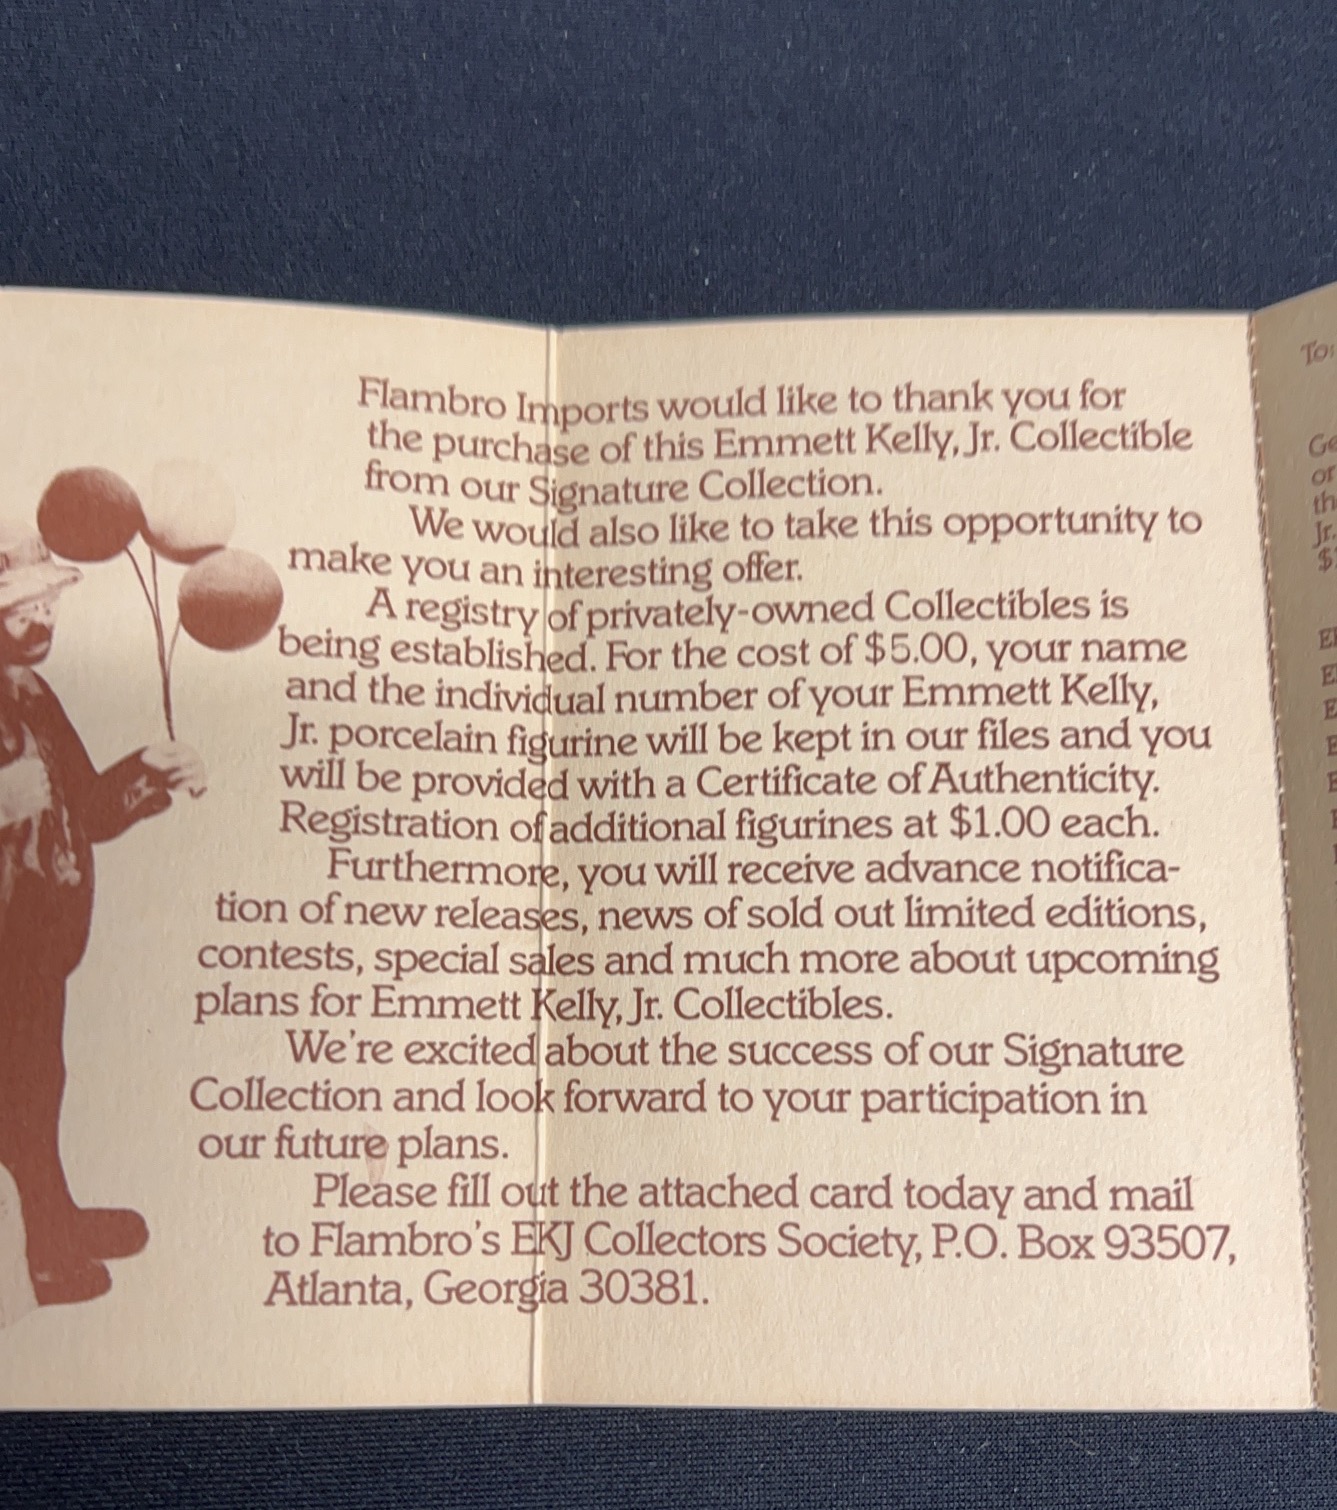 Flambro Imports would like to thank you for
the purchase of this Emmett Kelly, Jr. Collectible
from our Signature Collection.
We would also like to take this opportunity to
make you an interesting offer.
A registry of privately-owned Collectibles is
being established. For the cost of $5.00, your name
and the individual number of your Emmett Kelly,
Jr. porcelain figurine will be kept in our files and you
will be provided with a Certificate of Authenticity.
Registration of additional figurines at $1.00 each.
Furthermore, you will receive advance notifica-
tion of new releases, news of sold out limited editions,
contests, special sales and much more about upcoming
plans for Emmett Kelly, Jr. Collectibles.
We're excited about the success of our Signature
Collection and look forward to your participation in
our future plans.
Please fill out the attached card today and mail
to Flambro's EKJ Collectors Society, P.O. Box 93507,
Atlanta, Georgia 30381.
To:
Jr.